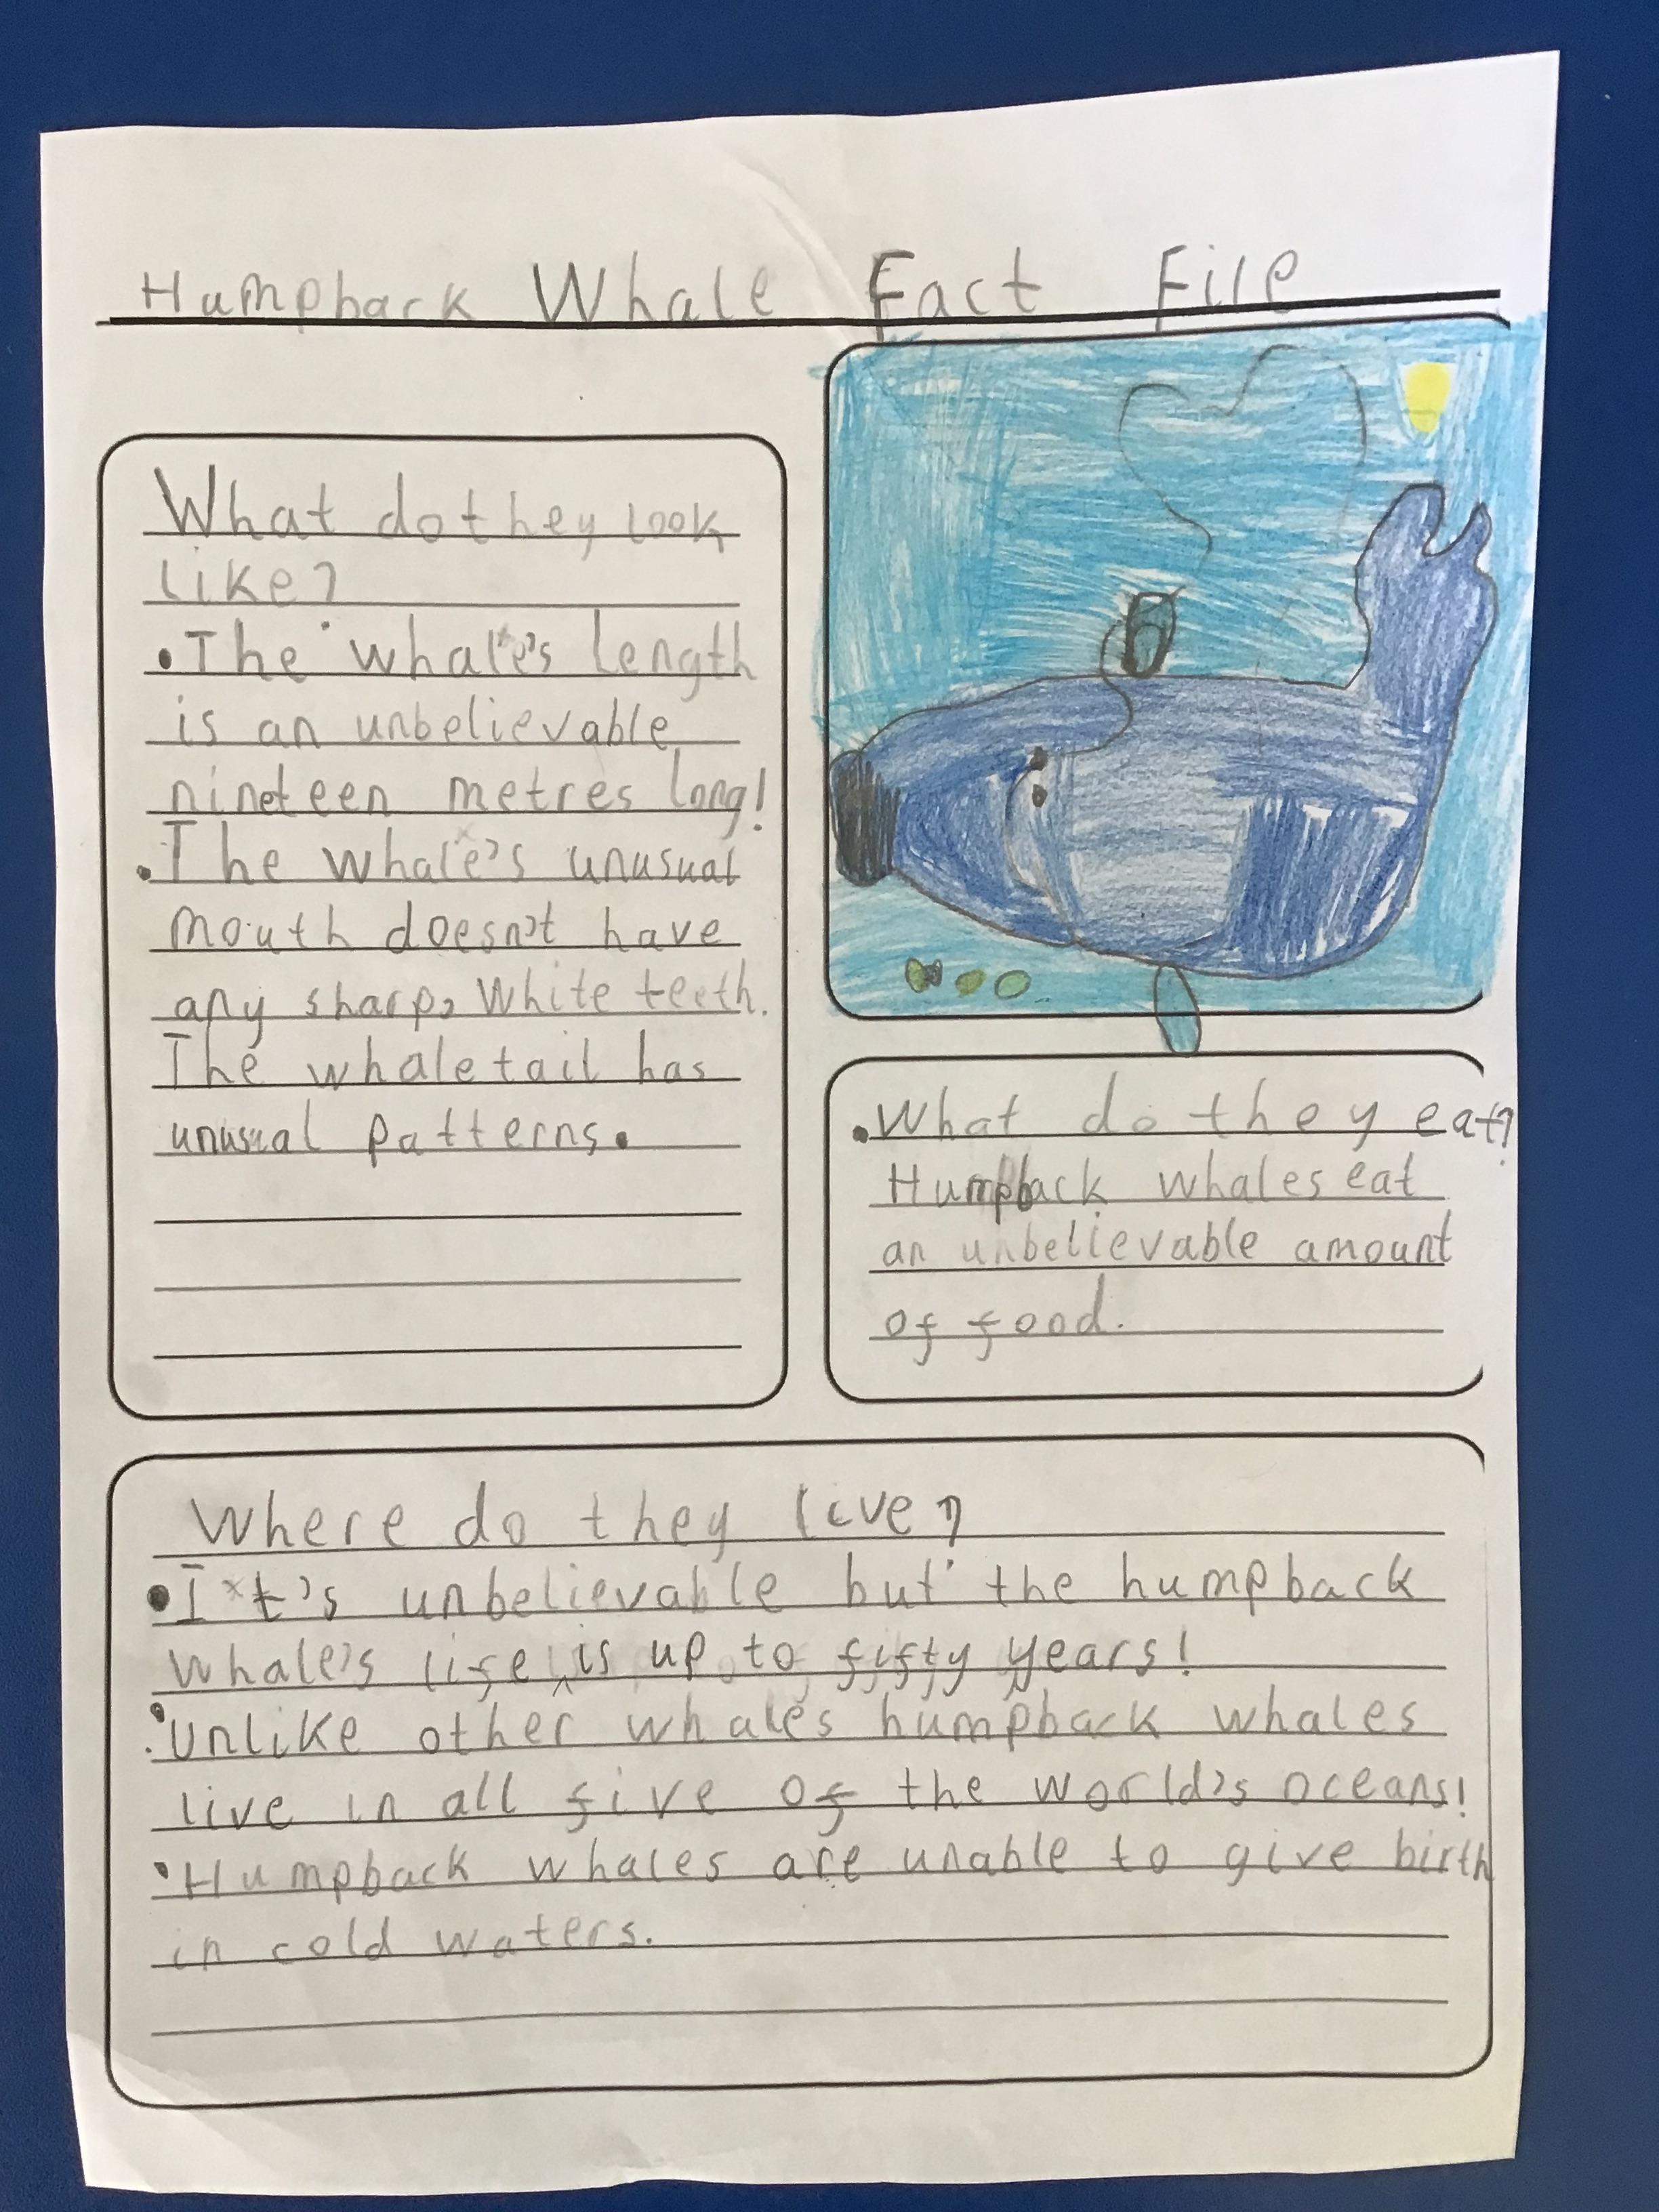 Humpback Whale Fact File
What do they look
like?
• The whale's length
is an unbelievable
nineteen metres long!
• The whale's unusual
mouth doesn't have
any sharp, white teeth.
The whale tail has
unusual patterns.
• What do they eat?
Humpback whales eat
an unbelievable amount
of food.
Where do they live?
• It's unbelievable but the humpback
whale's life is up to fifty years!
• Unlike other whales humpback whales
live in all five of the world's oceans!
• Humpback whales are unable to give birth
in cold waters.